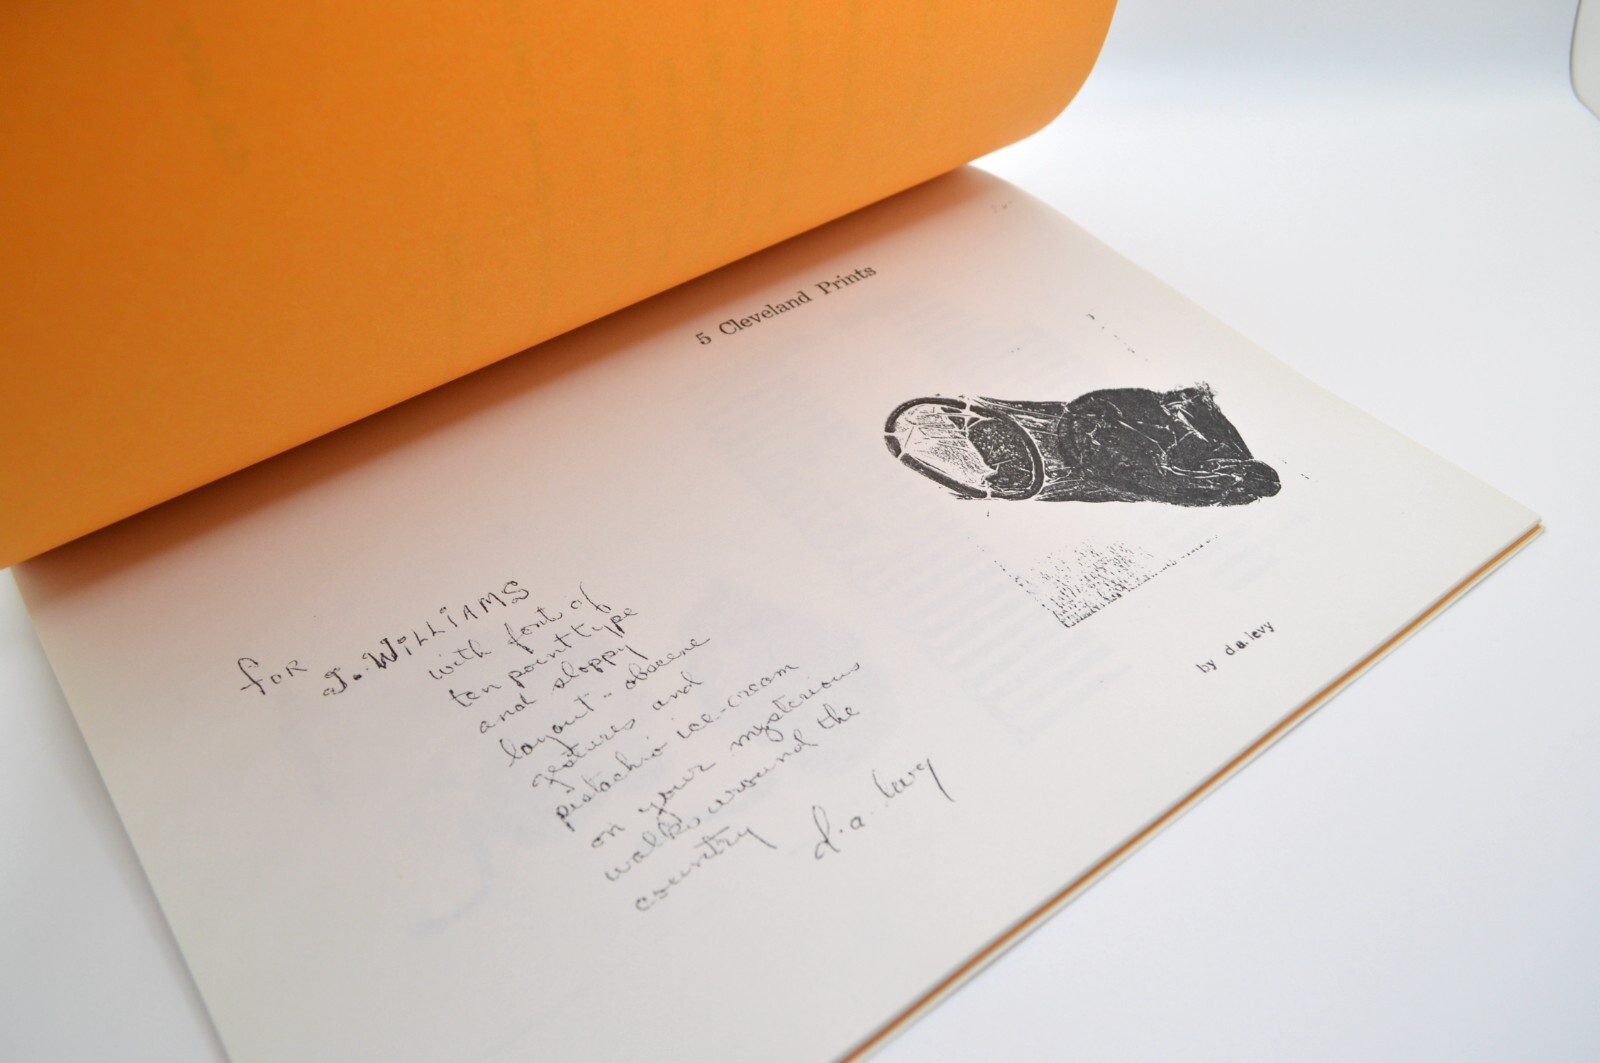 5 Cleveland Prints
by d.a. levy
for J. WilliAMS
with font of
ten point type
and sloppy
layout -- obscene
gestures and
pistachio ice-cream
on your mysterious
walks around the
country
d.a. levy